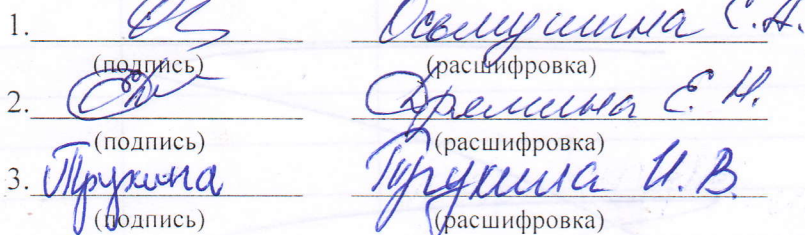 1. Осьмушина С.А.
(подпись) (расшифровка)
2. Дрямина Е.Н.
(подпись) (расшифровка)
3. Трухина Трухина И.В.
(подпись) (расшифровка)